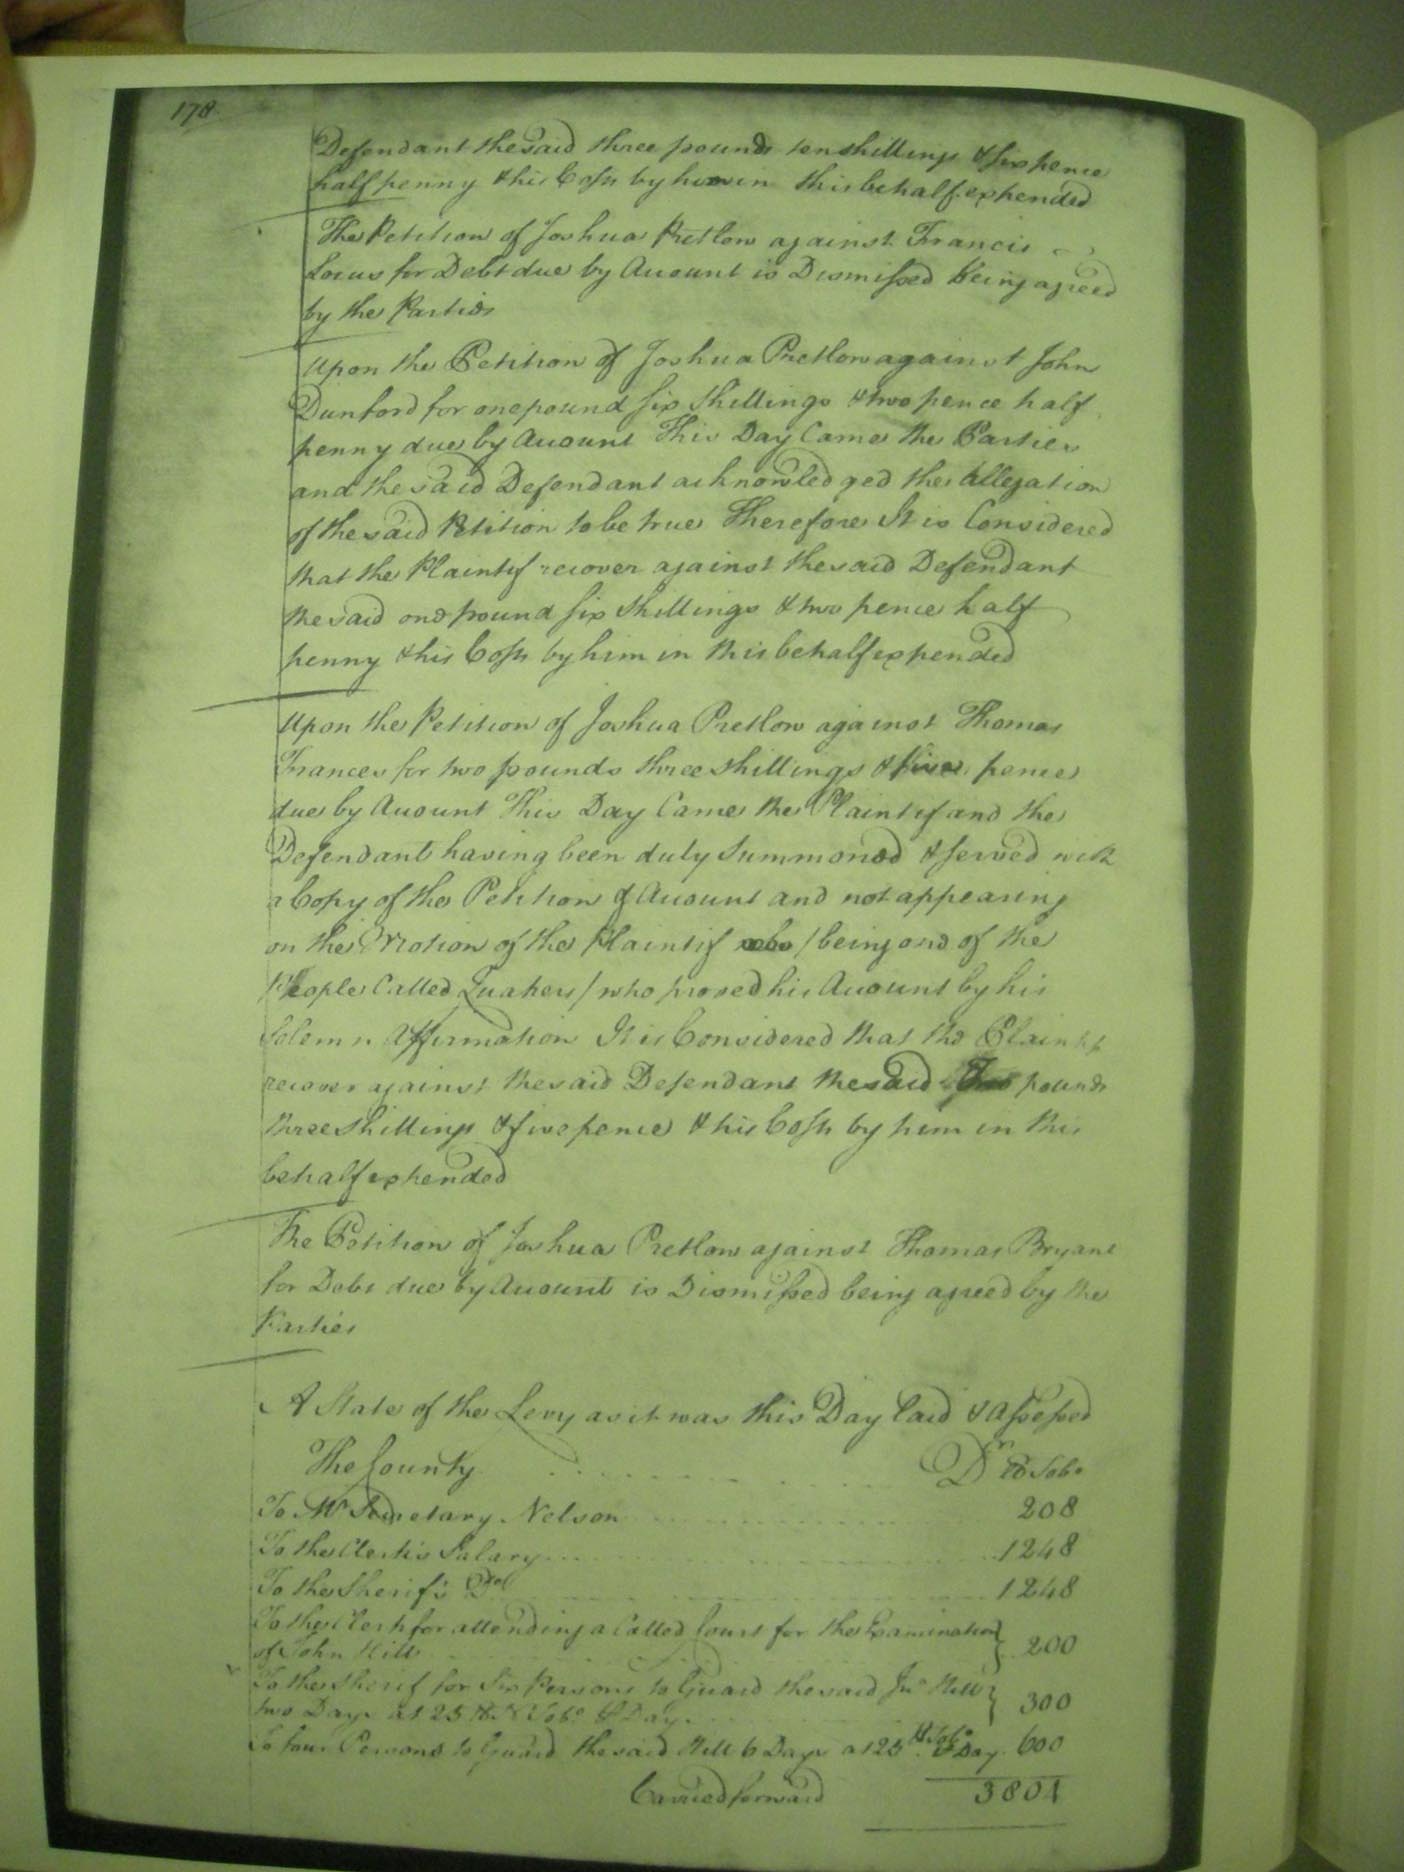 178
Defendant the said three pounds ten shillings & six pence
half penny & his Costs by him in this behalf expended
The Petition of Joshua Pretlow against Francis
Locus for Debt due by Account is Dismissed being agreed
by the Parties
Upon the Petition of Joshua Pretlow against John
Dunford for one pound six Shillings & two pence half
penny due by Account This Day Came the Parties
and the said Defendant acknowledged the Allegation
of the said Petition to be true Therefore It is Considered
that the Plaintif recover against the said Defendant
the said one pound six Shillings & two pence half
penny & his Costs by him in this behalf expended
Upon the Petition of Joshua Pretlow against Thomas
Frances for two pounds three shillings & five pence
due by Account This Day Came the Plaintif and the
Defendant having been duly Summoned & served with
a Copy of the Petition & Account and not appearing
on the Motion of the Plaintif /being one of the
People Called Quakers/ who proved his Account by his
Solemn Affirmation It is Considered that the Plaintif
recover against the said Defendant the said Two pounds
three Shillings & five pence & his Costs by him in this
behalf expended
The Petition of Joshua Pretlow against Thomas Bryant
for Debt due by Account is Dismissed being agreed by the
Parties
A State of the Levy as it was this Day laid & assessed
The County Dr lb Tobo
To Mr Secretary Nelson 208
To the Clerk's Salary 1248
To the Sherif's Do 1248
To the Clerk for attending a Called Court for the Examination
of John Hill 200
To the Sherif for Six Persons to Guard the said Jno Hill
two Days at 25 lb Tobo ⅌ Day 300
To four Persons to Guard the said Hill 6 Days a 125 lb Tobo ⅌ Day 600
Carried forward 3804